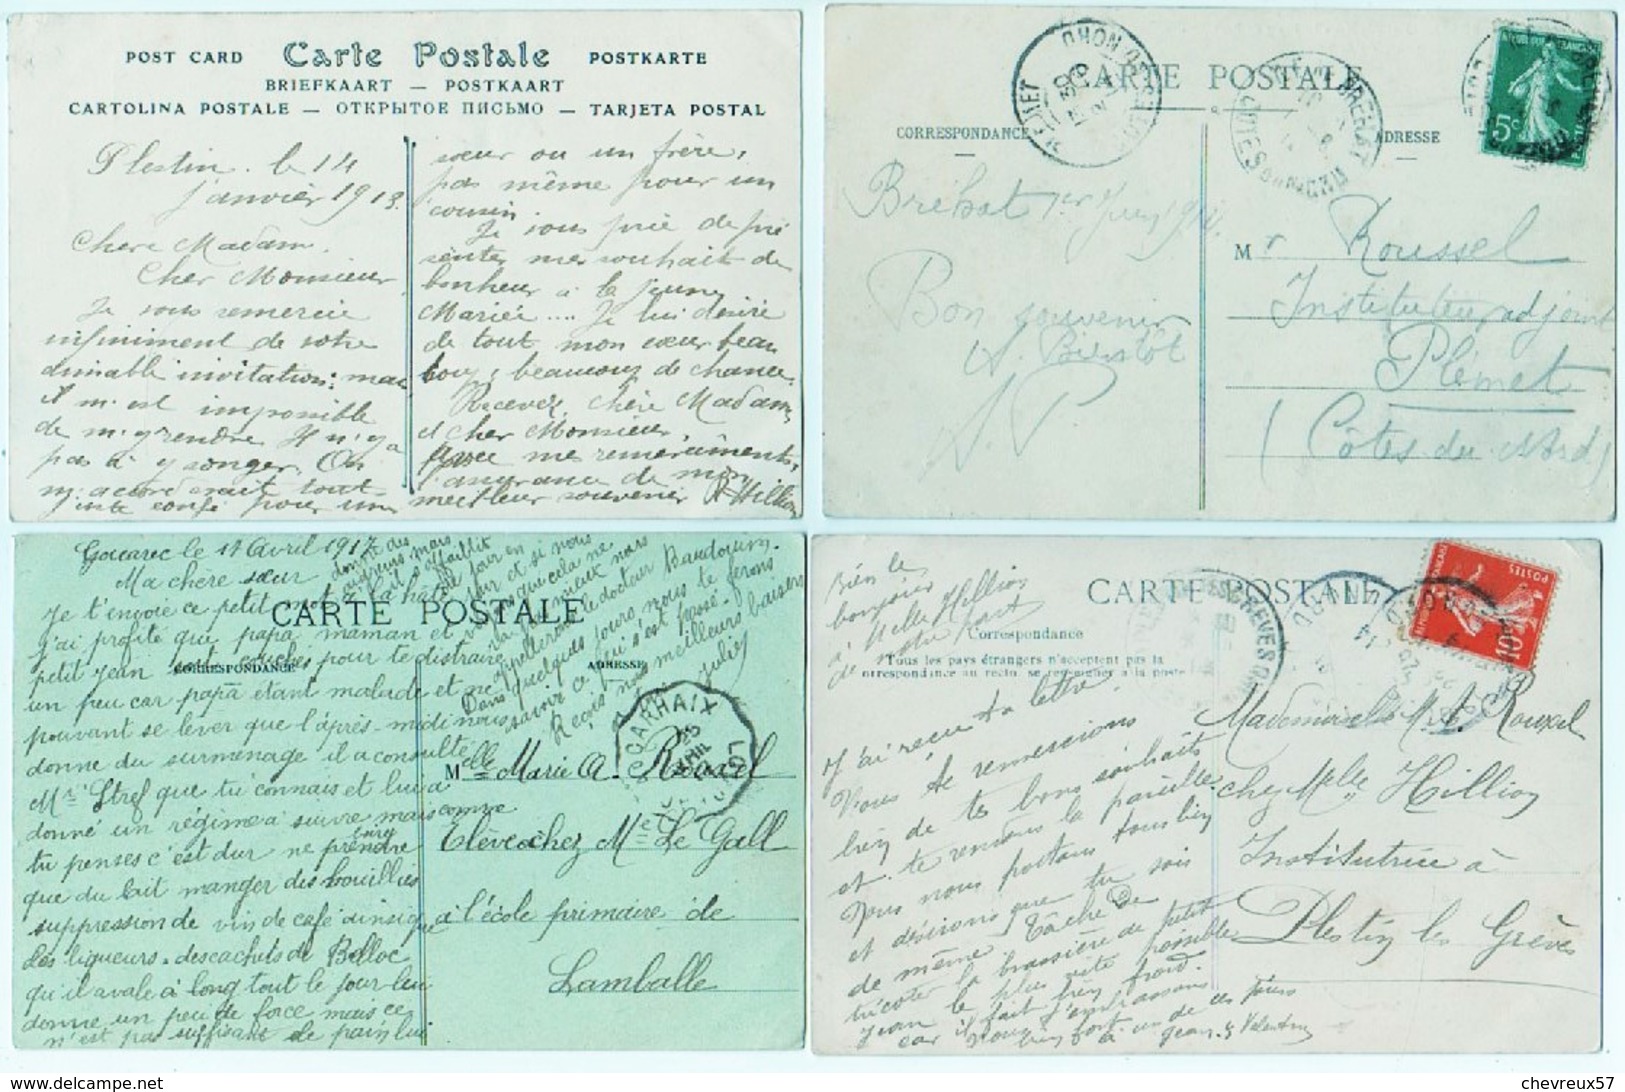 POST CARD Carte Postale POSTKARTE
BRIEFKAART — POSTKAART
CARTOLINA POSTALE — ОТКРЫТОЕ ПИСЬМО — TARJETA POSTAL
Plestin. le 14
janvier 1913.
Chere Madam.
Cher Monsieur
Je vous remercie
infiniment de votre
aimable invitation; mais
il m'est impossible
de m'y rendre. Il n'y a
pas à y songer. On
m'accorderait tout
juste congé pour un
sœur ou un frère,
pas même pour un
cousin.
Je vous prie de pré
senter mes souhaits de
bonheur à la jeune
Mariée .... Je lui désire
de tout mon cœur beau
coup, beaucoup de chance.
Recevez, chère Madam,
et cher Monsieur,
avec mes remerciements,
l'assurance de mon
meilleur souvenir Hillion
CARTE POSTALE
CORRESPONDANCE
ADRESSE
5c
Bréhat 1er
Bon souvenir
A Bientôt
Mr Roussel
Instituteur adjoint
Plémet
(Côtes du Nord)
Gouarec le 11 Avril 1917
Ma chère sœur
Je t'envoie ce petit mot à la hâte
CARTE POSTALE
j'ai profité que papa maman et
petit Jean sont couchés pour te distraire
CORRESPONDANCE
ADRESSE
un peu car papa étant malade et ne
pouvant se lever que l'après-midi nous
donne du surmenage il a consulté
Mr Stref que tu connais et lui a
donné un régime à suivre mais comme
tu penses c'est dur ne prendre
que du lait manger des bouillies
suppression de vin de café ainsi que
des liqueurs. des cachets de Belloc
qu'il avale à long tout le jour lui
donne un peu de force mais ce
n'est pas suffisant de pain lui
donne des
aigreurs mais
il s'affaiblit
de jour en
jour et si nous
voyons que cela ne
va pas mieux nous
appellerons le docteur Baudouin.
Dans quelques jours nous te ferons
savoir ce qui s'est passé.
Reçois nos meilleurs baisers
CARHAIX
Mlle Marie A. Rouxel
Elève chez Mme Le Gall
à l'école primaire de
Lamballe
Bien le
bonjour
à Melle Hillion
de notre part
CARTE POSTALE
Correspondance
Tous les pays étrangers n'acceptent pas la
correspondance au recto se renseigner à la poste
POSTES
10c
J'ai reçu ta lettre.
Nous te remercions
bien de tes bons souhaits
et te rendons la pareille.
Nous nous portons tous bien
et désirons que tu sois
de même. Tâche de
tricoter la brassière de petit
Jean le plus vite possible
car il fait bien froid.
Nous t'embrassons
bien fort à un de ces jours
Jean & Valentin
Mademoiselle M. A. Rouxel
chez Melle Hillion
Institutrice à
Plestin les Grèves
chevreux57